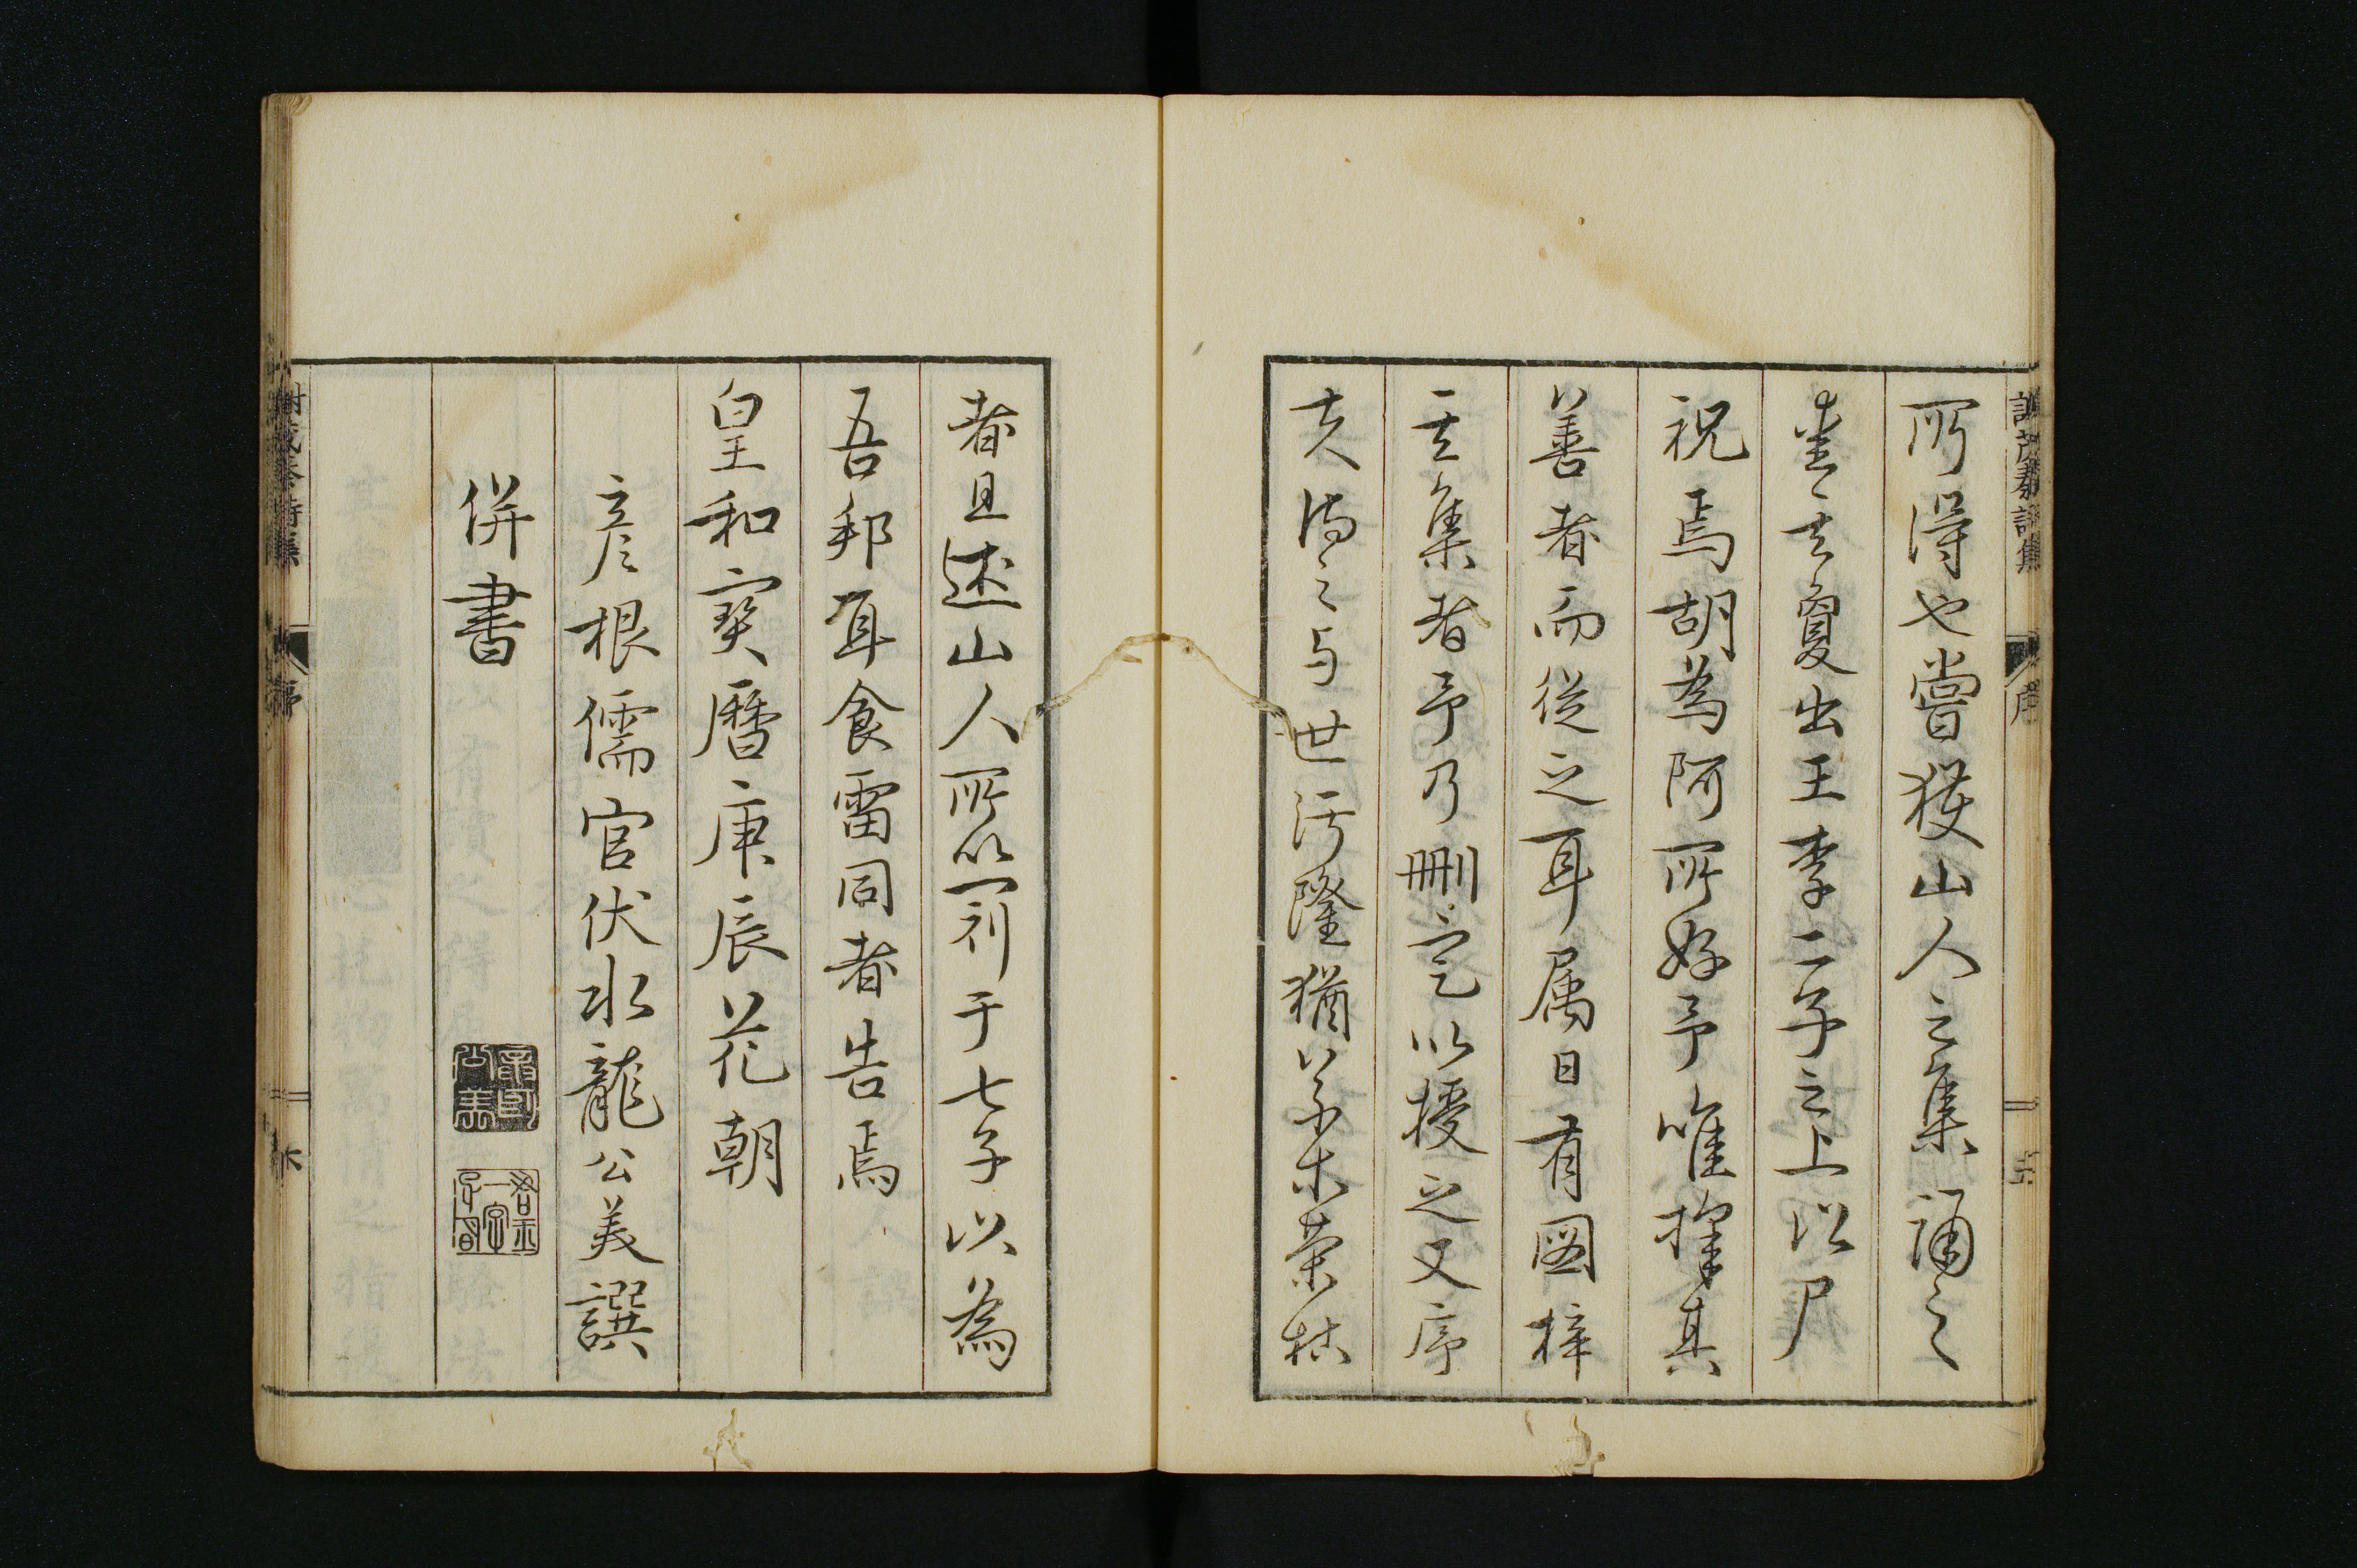 謝茂秦詩集 序
所得也嘗獲山人之集誦之
其夐出王李二子之上以尸
祝焉胡為阿所好予唯擇其
善者而從之耳属日有図梓
其集者予乃刪定以授之又序
夫詩之与世汙隆猶草木榮枯
者且述山人所以冠于七子以為
吾邦耳食雷同者告焉
皇和寳曆庚辰花朝
彦根儒官伏水龍公美譔
併書
謝茂秦詩集 序